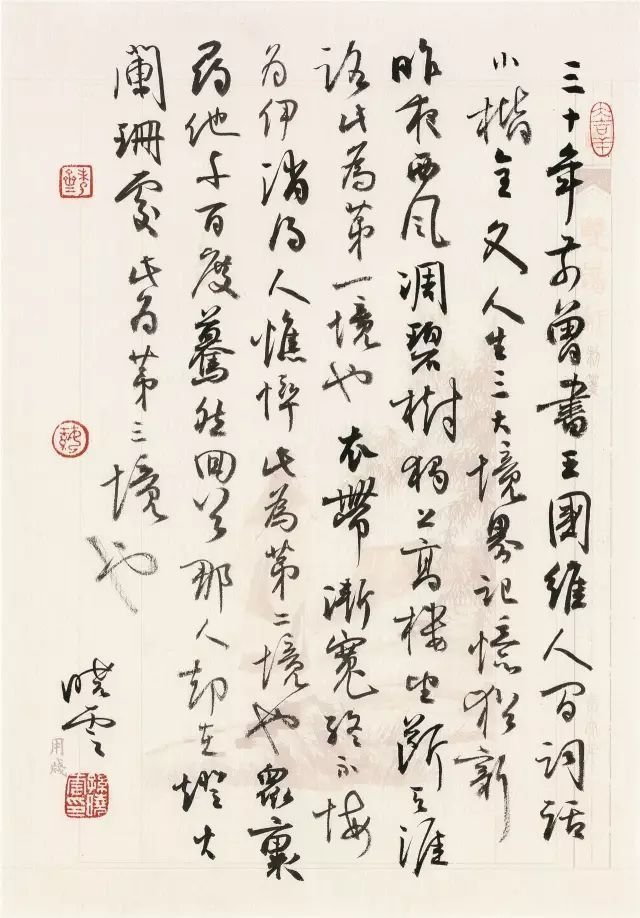 三十年前曾書王國維人间词話
小楷全文人生三大境界记憶猶新
昨夜西风凋碧樹獨上高樓望斷天涯
路此為第一境也衣帶漸寬終不悔
为伊消得人憔悴此為第二境也眾裏
尋他千百度驀然回首那人却在燈火
闌珊處此为第三境也
晓雲
用箋